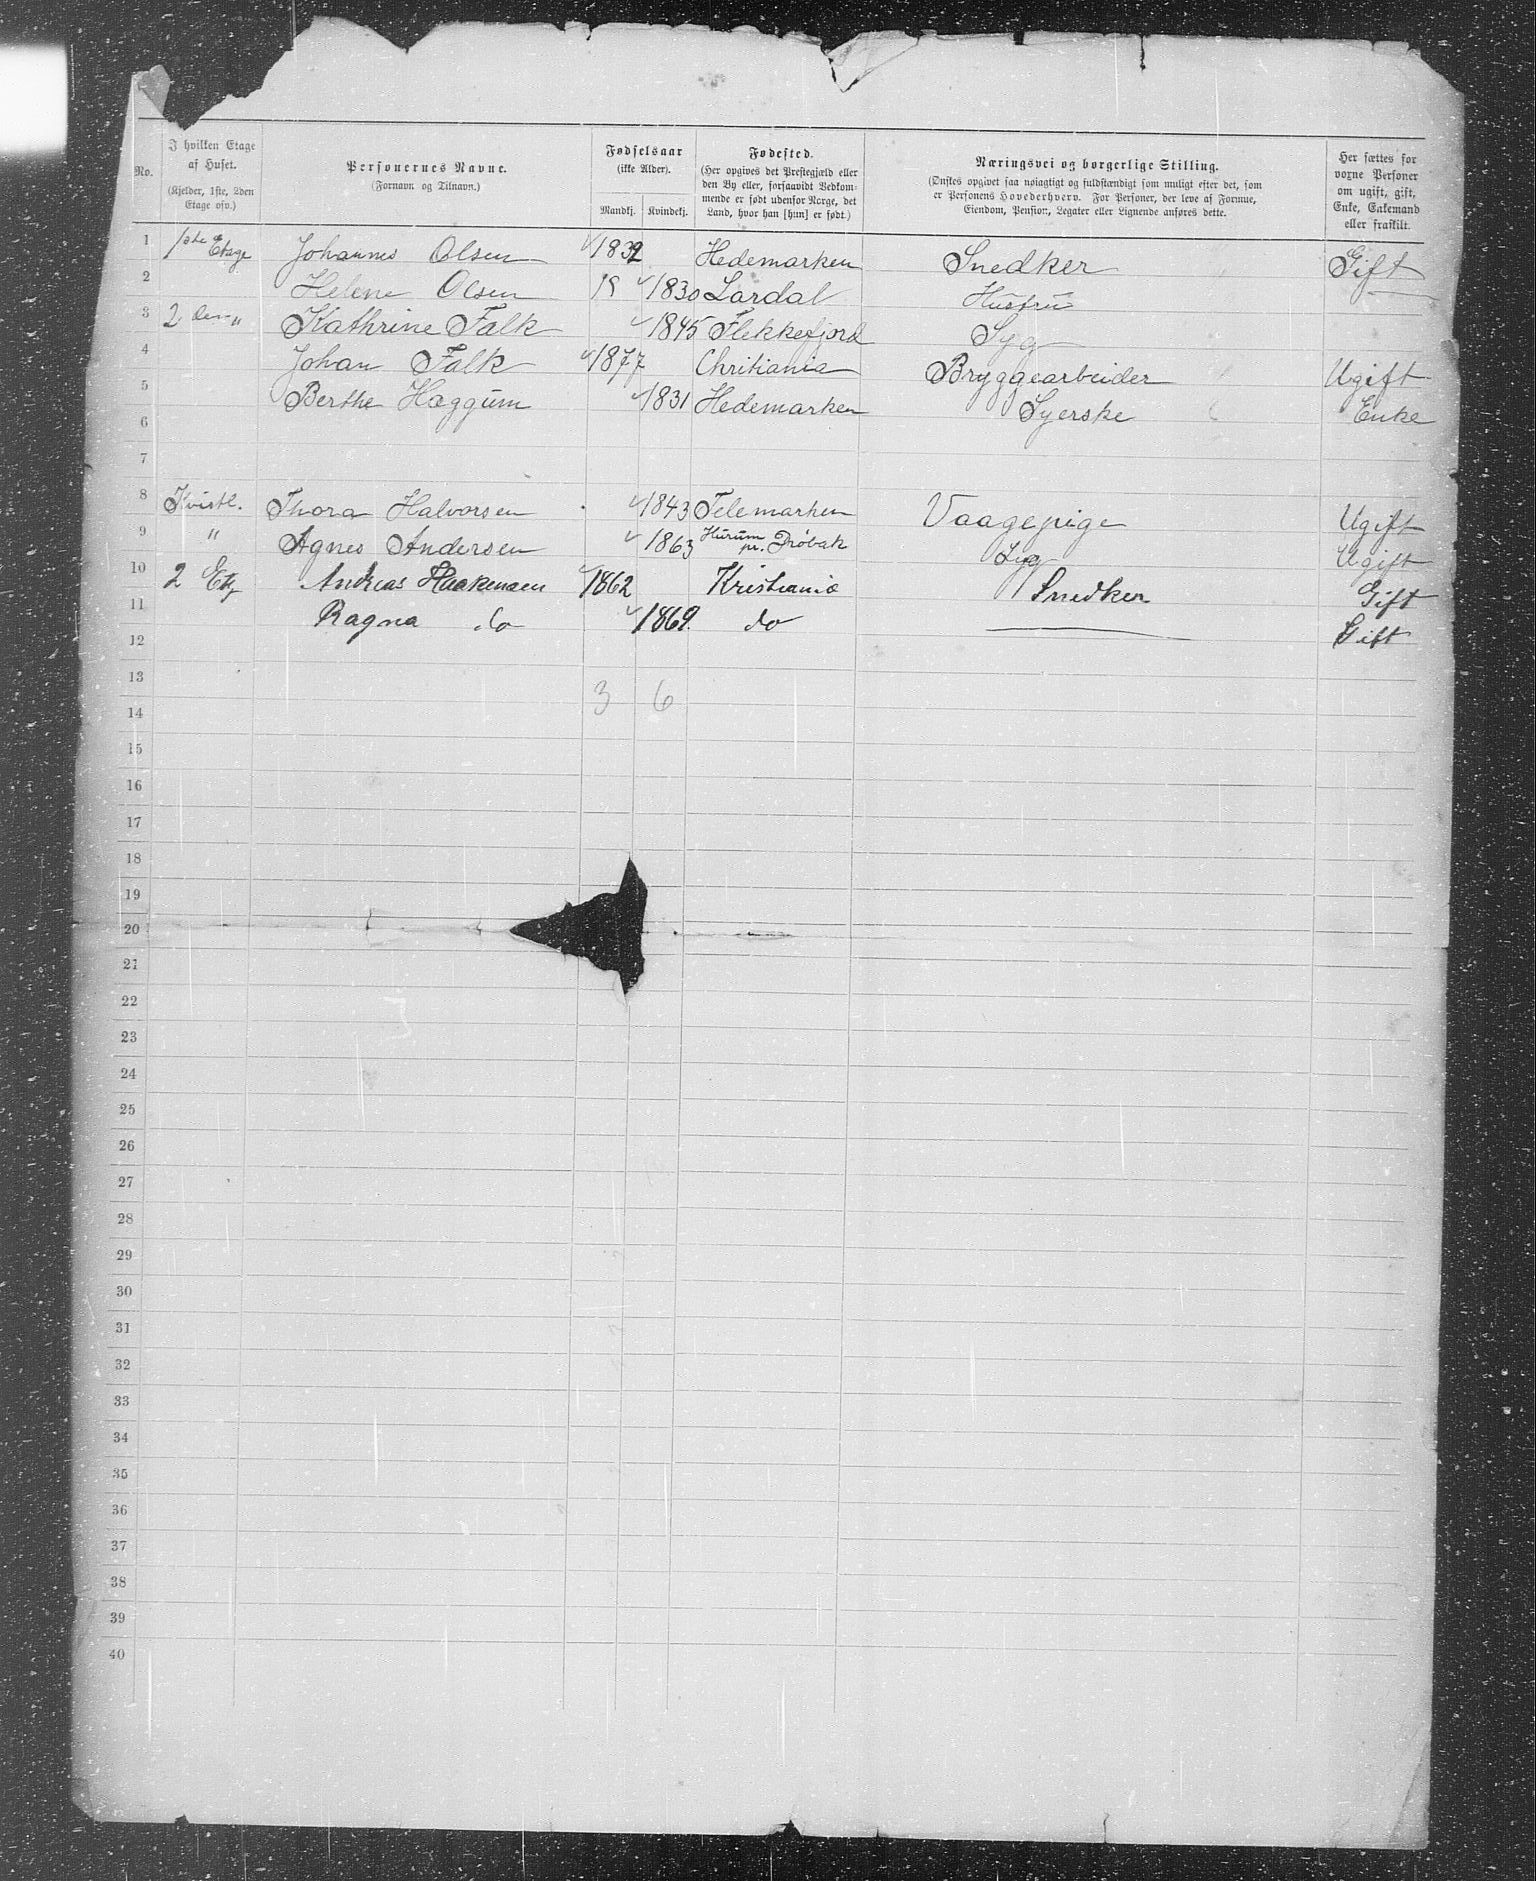 No. | I hvilken Etage af Huset. (Kjelder, 1ste, 2den Etage osv.) | Personernes Navne. (Fornavn og Tilnavn.) | Fødselsaar (ikke Alder). Mandkj. | Kvindekj. | Fødested. (Her opgives det Prestegjæld eller den By eller, forsaavidt Vedkommende er født udenfor Norge, det Land, hvor han [hun] er født.) | Næringsvei og borgerlige Stilling. (Ønskes opgivet saa nøiagtigt og fuldstændigt som muligt efter det, som er Personens Hovederhverv. For Personer, der leve af Formue, Eiendom, Pension, Legater eller Lignende anføres dette. | Her sættes for vorne Personer om ugift, gift, Enke, Enkemand eller fraskilt.
1 1ste Etage Johannes Olsen 1832 Hedemarken Snedker Gift
2 Helene Olsen 18 1830 Lardal Hustru
3 2 den " Kathrine Falk 1845 Flekkefjord Syg
4 Johan Falk 1877 Chritiania Bryggearbeider Ugift
5 Berthe Haggum 1831 Hedemarken Syerske Enke
6
7
8 Kvistl. Thora Halvorsen 1843 Telemarken Vaagepige Ugift
9 " Agnes Andersen 1863 Hurum pr. Drøbak Syg Ugift
10 2 Etg Andreas Haakensen 1862 Kristiania Snedker Gift
11 Ragna do 1869. do Gift
12
13
3 6
14
15
16
17
18
19
20
21
22
23
24
25
26
27
28
29
30
31
32
33
34
35
36
37
38
39
40